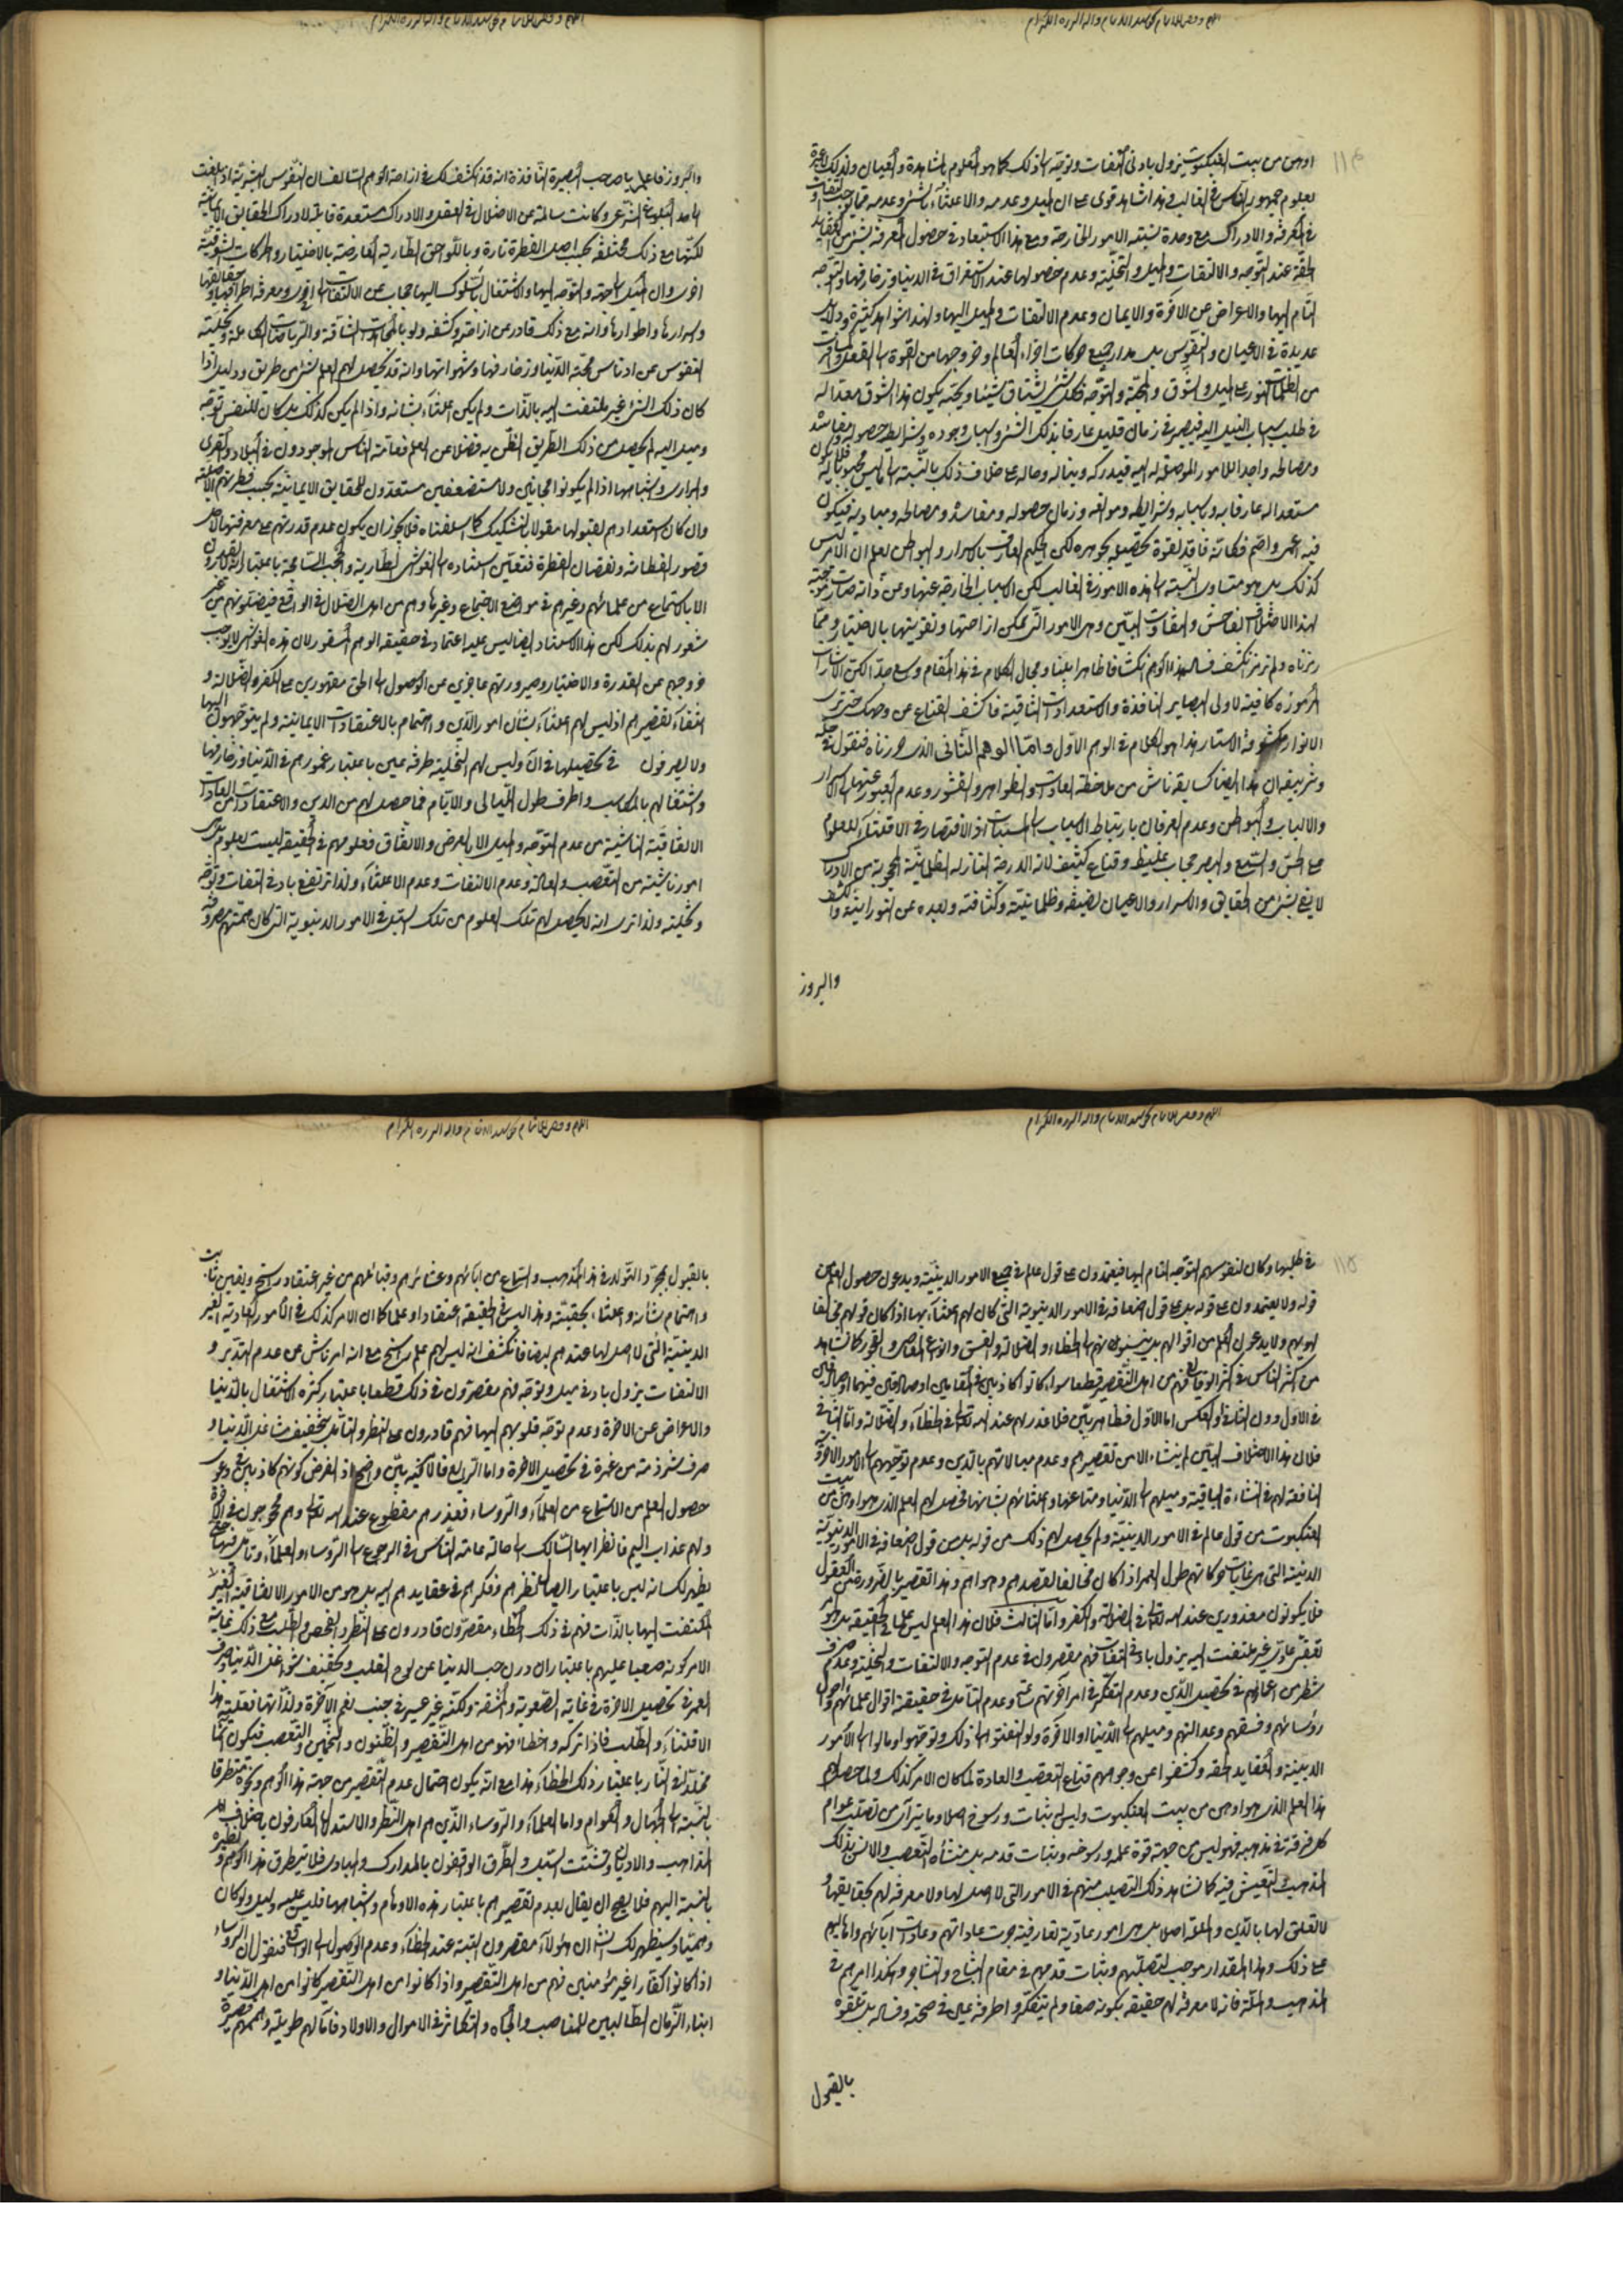 اوهن من بيت العنكبوت يزول بادنى التفات وتوجه الى ذلك كما هو المعلوم بالمشاهدة والعيان ولذلك
جمهور الناس فى الغالب فى هذا شاهد قوى على ان الميل وعدمه والاعتناء بالشئ وعدمه
فى المعرفة والادراك مع وحدة نسبته الامور الخارجة ومع هذا الاستبعاد فى حصول المعرفة بشئ من العقايد
الحقة عند التوجه والالتفات والميل والتخلية وعدم حصولها عند الاستغراق فى الدنيا وزخارفها والتوجه
التام اليها والاعراض عن الآخرة والايمان وعدم الالتفات والميل اليها ولهذا شواهد كثيرة ودلايل
عديدة فى الاعيان والنفوس بل مدار جميع حركات اجزاء العالم وخروجها من القوة الى الفعل
من الظلمات الى النور على الميل والشوق والمحبة والتوجه فكل شئ يشتاق شيئا ويحبه يكون هذا الشوق معدا له
فى طلب اسباب النيل اليه فيصير فى زمان قليل عارفا بذلك الشئ واسباب وجوده وشرايط حصوله ومفاسده
ومصالحه واجدا للامور الموصلة له اليه فيدركه ويناله وحاله على خلاف ذلك بالنسبة الى ما ليس محبوبا له
مستعدا له عارفا به وباسبابه وشرايطه وموانعه وزمان حصوله ومفاسده ومصالحه ومباديه فيكون
فيه اعمى واصم فكانه فاقد لقوة تحصيله بجوهره لكن الحكيم العارف بالاسرار والبواطن يعلم ان الامر ليس
كذلك بل هو متساوى النسبة الى هذه الامور فى الغالب لكن الاسباب الخارجة عنها وعن ذاته صارت موجبة
لهذا الاختلاف الفاحش والتفاوت البين وهى الامور التى يمكن ازاحتها وتقويتها بالاختيار ومما
زبرناه ولم نزبر ينكشف فساد هذا الوهم انكشافا ظاهرا بينا ومجال الكلام فى هذا المقام وسع جدا لكن الاشارات
المرموزة كافية لاولى البصاير النافذة والاستعدادات الثاقبة فاكشف القناع عن وجهك حتى ترى
الانوار مكشوفة الاستار هذا هو الكلام فى الوهم الاول واما الوهم الثانى الذى حررناه فنقول فى حله
وتزييفه ان هذا ايضا كسابقه ناش من ملاحظة العادات والظواهر والقشور وعدم العبور عنها الى الاسرار
والالباب والبواطن وعدم العرفان بارتباط الاسباب الى المسببات اذ الاقتصار فى الاقتناء للعلوم
على الحس والسمع والبصر حجاب غليظ وقناع كثيف لان الدرجة النازلة الظلمانية المحجوبة من الادراك
لا يفى بشئ من الحقايق والاسرار والاعيان لضيقه وظلمانيته وكثافته وبعده عن النورانية والكشف
والبروز
والبروز فاعلم يا صاحب البصيرة النافذة انه قد انكشف لك فى ازاحة الوهم السالف ان النفوس البشرية اذا بلغت
الى حد البلوغ الشرعى وكانت سالمة عن الاختلال فى العقل والادراك مستعدة قابلة لادراك الحقايق الايمانية
لكنها مع ذلك مختلفة بحسب اصل الفطرة تارة وباللواحق الطارية العارضة بالاختيار والحركات الشوقية
اخرى وان الميل الى جهة والتوجه اليها والاشتغال بالسلوك اليها حجاب عن الالتفات الى اخرى ومعرفة اطرافها وحقايقها
واسرارها واطوارها وانه مع ذلك قادر عن ازاحته وكشفه ولو بالمجاهدات الشاقة والرياضات الكاملة وتخلية
النفوس عن ادناس محبة الدنيا وزخارفها وشهواتها وانه قد يحصل لهم العلم بشئ من طريق ودليل اذا
كان ذلك الشئ غير ملتفت اليه بالذات ولم يكن اعتناء بشانه واذا لم يكن كذلك بل كان للنفس توجه
وميل اليه لم يحصل من ذلك الطريق الظن به فضلا عن العلم فعامة الناس الموجودون فى البلاد والقرى
والبرارى واشباهها اذا لم يكونوا مجانين ولا مستضعفين مستعدون للحقايق الايمانية بحسب فطرتهم الاصلية
وان كان استعدادهم لقبولها مقولا بالتشكيك كما اسلفناه فلا يجوز ان يكون عدم قدرتهم على معرفتها لاجل
قصور الفطانة ونقصان الفطرة فتعين استناده الى الغواشى الطارية والحجب السانحة باعتبار
الا بالاستماع من علمائهم وغيرهم فى مواضع الاجتماع وغيرها وهم من اهل الضلال فى الواقع فيضلونهم من غير
شعور لهم بذلك لكن هذا الاستناد ايضا ليس عليه اعتماد فى حقيقة الوهم المسفور لان هذه الغواشى لا يوجب
خروجهم عن القدرة والاختيار وصيرورتهم عاجزى عن الوصول الى الحق مقهورين على الكفر والضلالة و
انتفاء تقصيرهم اذ ليس لهم اعتناء بشان امور الدين واهتمام بالاعتقادات الايمانية ولم يتوجهون اليها
ولا يصرفون فى تحصيلها فى الآن وليس لهم التخلية طرفة عين باعتبار غمورهم فى الدنيا وزخارفها
واشتغالهم بالمكاسب واطراف طول الليالى والايام فما حصل لهم من الدين والاعتقادات من العادات
الاتفاقية الناشية من عدم التوجه والميل الا بالعرض والاتفاق فعلومهم فى الحقيقة ليست بعلوم بل هى
امور ناشية من التعصب والعادة وعدم الالتفات وعدم الاعتناء ولذا ترتفع بادنى التفات وتوجه
وتخلية ولذا ترى انه لا يحصل لهم تلك العلوم من تلك السبل فى الامور الدنيوية التى كان همتهم مصروفة
فى طلبها وكان لنفوسهم التوجه التام اليها فيعتمدون على قول عالم فى جميع الامور الدينية ويدعون حصول العلم من
قوله ولا يعتمدون على قوله بل على قول اضعافه فى الامور الدنيوية التى كان لهم اعتناء بها اذا كان قولهم مخالفا
لهويهم ولا يدعون العلم من اقوالهم بل ينسبونهم الى الخطاء والضلالة والفسق والمعاصى والفجور كما نشاهد
من اكثر الناس فى اكثر الوقايع فهم من اهل التقصير قطعا سواء كانوا كاذبين فى المقامين او صادقين فيهما او صادقين
فى الاول دون الثانى او بالعكس اما الاول فظاهر بين فلا عذر لهم عند الله تعالى فى الخطاء والضلالة واما الثانى
فلان هذا الاختلاف البين لم ينشاء الا من تقصيرهم وعدم مبالاتهم بالدين وعدم توجههم الى الامور الاخروية
النافعة لهم فى النشاءة الباقية وميلهم الى الدنيا ومتاعها واعتنائهم بشانها فحصل لهم العلم الذى هو اوهن من بيت
العنكبوت من قول عالم فى الامور الدينية ولم يحصل لهم ذلك من قوله بل من قول اضعافه فى الامور الدنيوية
الدنية التى هى غايات حركاتهم طول العمر اذا كان مخالفا لقصدهم وهواهم وهذا تقصير بالضرورة من العقول
فلا يكونون معذورين عند الله تعالى فى الضلالة والكفر واما الثالث فلان هذا العلم ليس علما فى الحقيقة بل هو
غير ملتفت اليه يزول بادنى التفات فهم مقصرون فى عدم التوجه والالتفات والتخلية وعدم صرف
شطر من اعمارهم فى تحصيل الدين وعدم التفكر فى امر آخرتهم وعدم التامل فى حقيقة اقوال علمائهم واحوال
رؤسائهم وفسقهم وعدالتهم وميلهم الى الدنيا او الآخرة ولو التفتوا الى ذلك وتوجهوا ومالوا الى الامور
الدينية والعقايد الحقة وكشفوا عن وجوههم قناع التعصب والعادة لما كان الامر كذلك ولما حصل لهم
هذا العلم الذى هو اوهن من بيت العنكبوت وليس له ثبات ورسوخ اصلا وما يترآى من تصلب عوام
كل فرقة فى مذهبه فهو ليس من جهة قوة علمه ورسوخه وثبات قدمه بل منشاه التعصب والانس بذلك
المذهب والتعيش فيه كما نشاهد ذلك التصلب منهم فى الامور التى لا اصل لها ولا معرفة لهم بحقايقها و
لا تعلق لها بالدين والملة اصلا بل هى امور عادية تعارفية جرت عاداتهم وعادات آبائهم واهاليهم
على ذلك وهذا المقدار موجب لتصلبهم وثبات قدمهم فى مقام التشاح والتشاجر وهكذا امرهم فى
المذهب والملة فانه لا معرفة لهم حقيقة بكونه حقا ولم يتفكروا طرفة عين فى صحته وفساده بل تلقوه
بالقبول
بالقبول بمجرد التولد فى هذا المذهب والسماع من آبائهم وعشائرهم وقبائلهم من غير اعتقاد راسخ ويقين ثابت
واهتمام بشانه واعتناء بحقيته وهذا ليس فى الحقيقة اعتقادا وعلما كما ان الامر كذلك فى الامور العادية الغير
الدينية التى لا اصل لها عندهم ايضا فانكشف انه ليس لهم علم راسخ مع انه امر ناش من عدم التدبر و
الالتفات يزول بادنى ميل وتوجه فهم مقصرون فى ذلك قطعا باعتبار كثرة الاشتغال بالدنيا
والاعراض عن الآخرة وعدم توجه قلوبهم اليها فهم قادرون على النظر والتامل بتخفيف مشاغل الدنيا و
صرف شرذمة من عمره فى تحصيل الآخرة واما الرابع فالامر فيه بين واضح اذ الفرض كونهم كاذبين فى دعوى
حصول العلم من الاستماع من العلماء والرؤساء فعذرهم مقطوع عند الله تعالى وهم محجوجون فى الآخرة
ولهم عذاب اليم فانظر ايها السالك الى حالة عامة الناس فى الرجوع الى الرؤساء والعلماء وتامل فيها حتى
يظهر لك انه ليس باعتبار ايصال نظرهم وفكرهم فى عقايدهم اليه بل هو من الامور الاتفاقية الغير
الملتفت اليها بالذات فهم فى ذلك الخطاء مقصرون قادرون على النظر والفحص والطلب مع ذلك غاية
الامر كونه صعبا عليهم باعتبار ان درن حب الدنيا عن لوح القلب وتخفيف شواغل الدنيا وصرف
العمر فى تحصيل الآخرة فى غاية الصعوبة والمشقة ولكنه غير عسير فى جنب نعم الآخرة ولذاتها فعليه بهذا
الاقتناء والطلب فاذا تركه واخطاء فهو من اهل التقصير والظنون والتخمين والتعصب فيكون آثما
مخلدا فى النار باعتبار ذلك الخطاء هذا مع انه يكون احتمال عدم التقصير من جهة هذا الوهم ونحوه متطرقا
بالنسبة الى الجهال والعوام واما العلماء والرؤساء الذين هم اهل النظر والاستدلال العارفون باختلاف اهل
المذاهب والاديان وتشتت السبل والطرق الواقفون بالمدارك والمبادى فلا يتطرق هذا الوهم ونظيره
بالنسبة اليهم فلا يصح ان يقال بعدم تقصيرهم باعتبار هذه الاوهام واشباهها فليس عليه دليل ولو كان
وهميا وسيظهر لك انشاء الله ان هؤلاء مقصرون البتة عند الخطاء وعدم الوصول الى الواقع فنقول ان الرؤساء
اذا كانوا كفارا غير مؤمنين فهم من اهل التقصير واذا كانوا من اهل التقصير كانوا من اهل الدنيا و
ابناء الزمان الطالبين للمناصب والجاه والتكاثر فى الاموال والاولاد فآمالهم طويلة وهممهم قصيرة